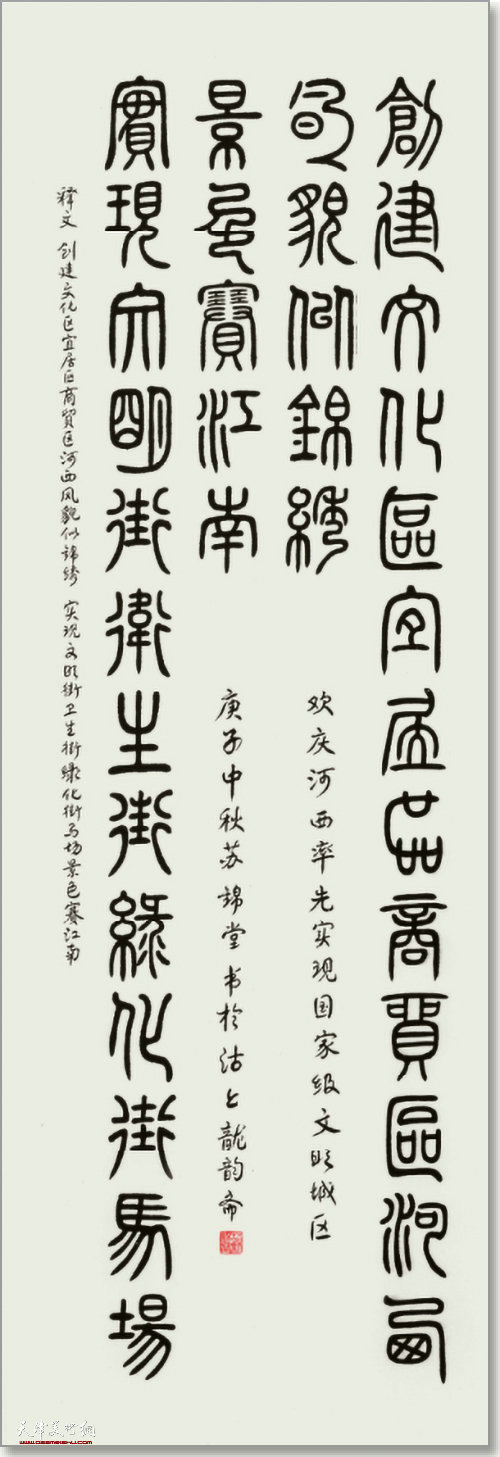 創建文化區宜居區商貿區河西
風貌似錦綉
欢庆河西率先实现国家级文明城区
實現文明街衛生街綠化街馬場
景色賽江南
庚子中秋苏锦堂书於沽上龍韵斋
释文 创建文化区宜居区商貿区河西风貌似锦绣 实现文明街卫生街绿化街马场景色赛江南
天津美术网